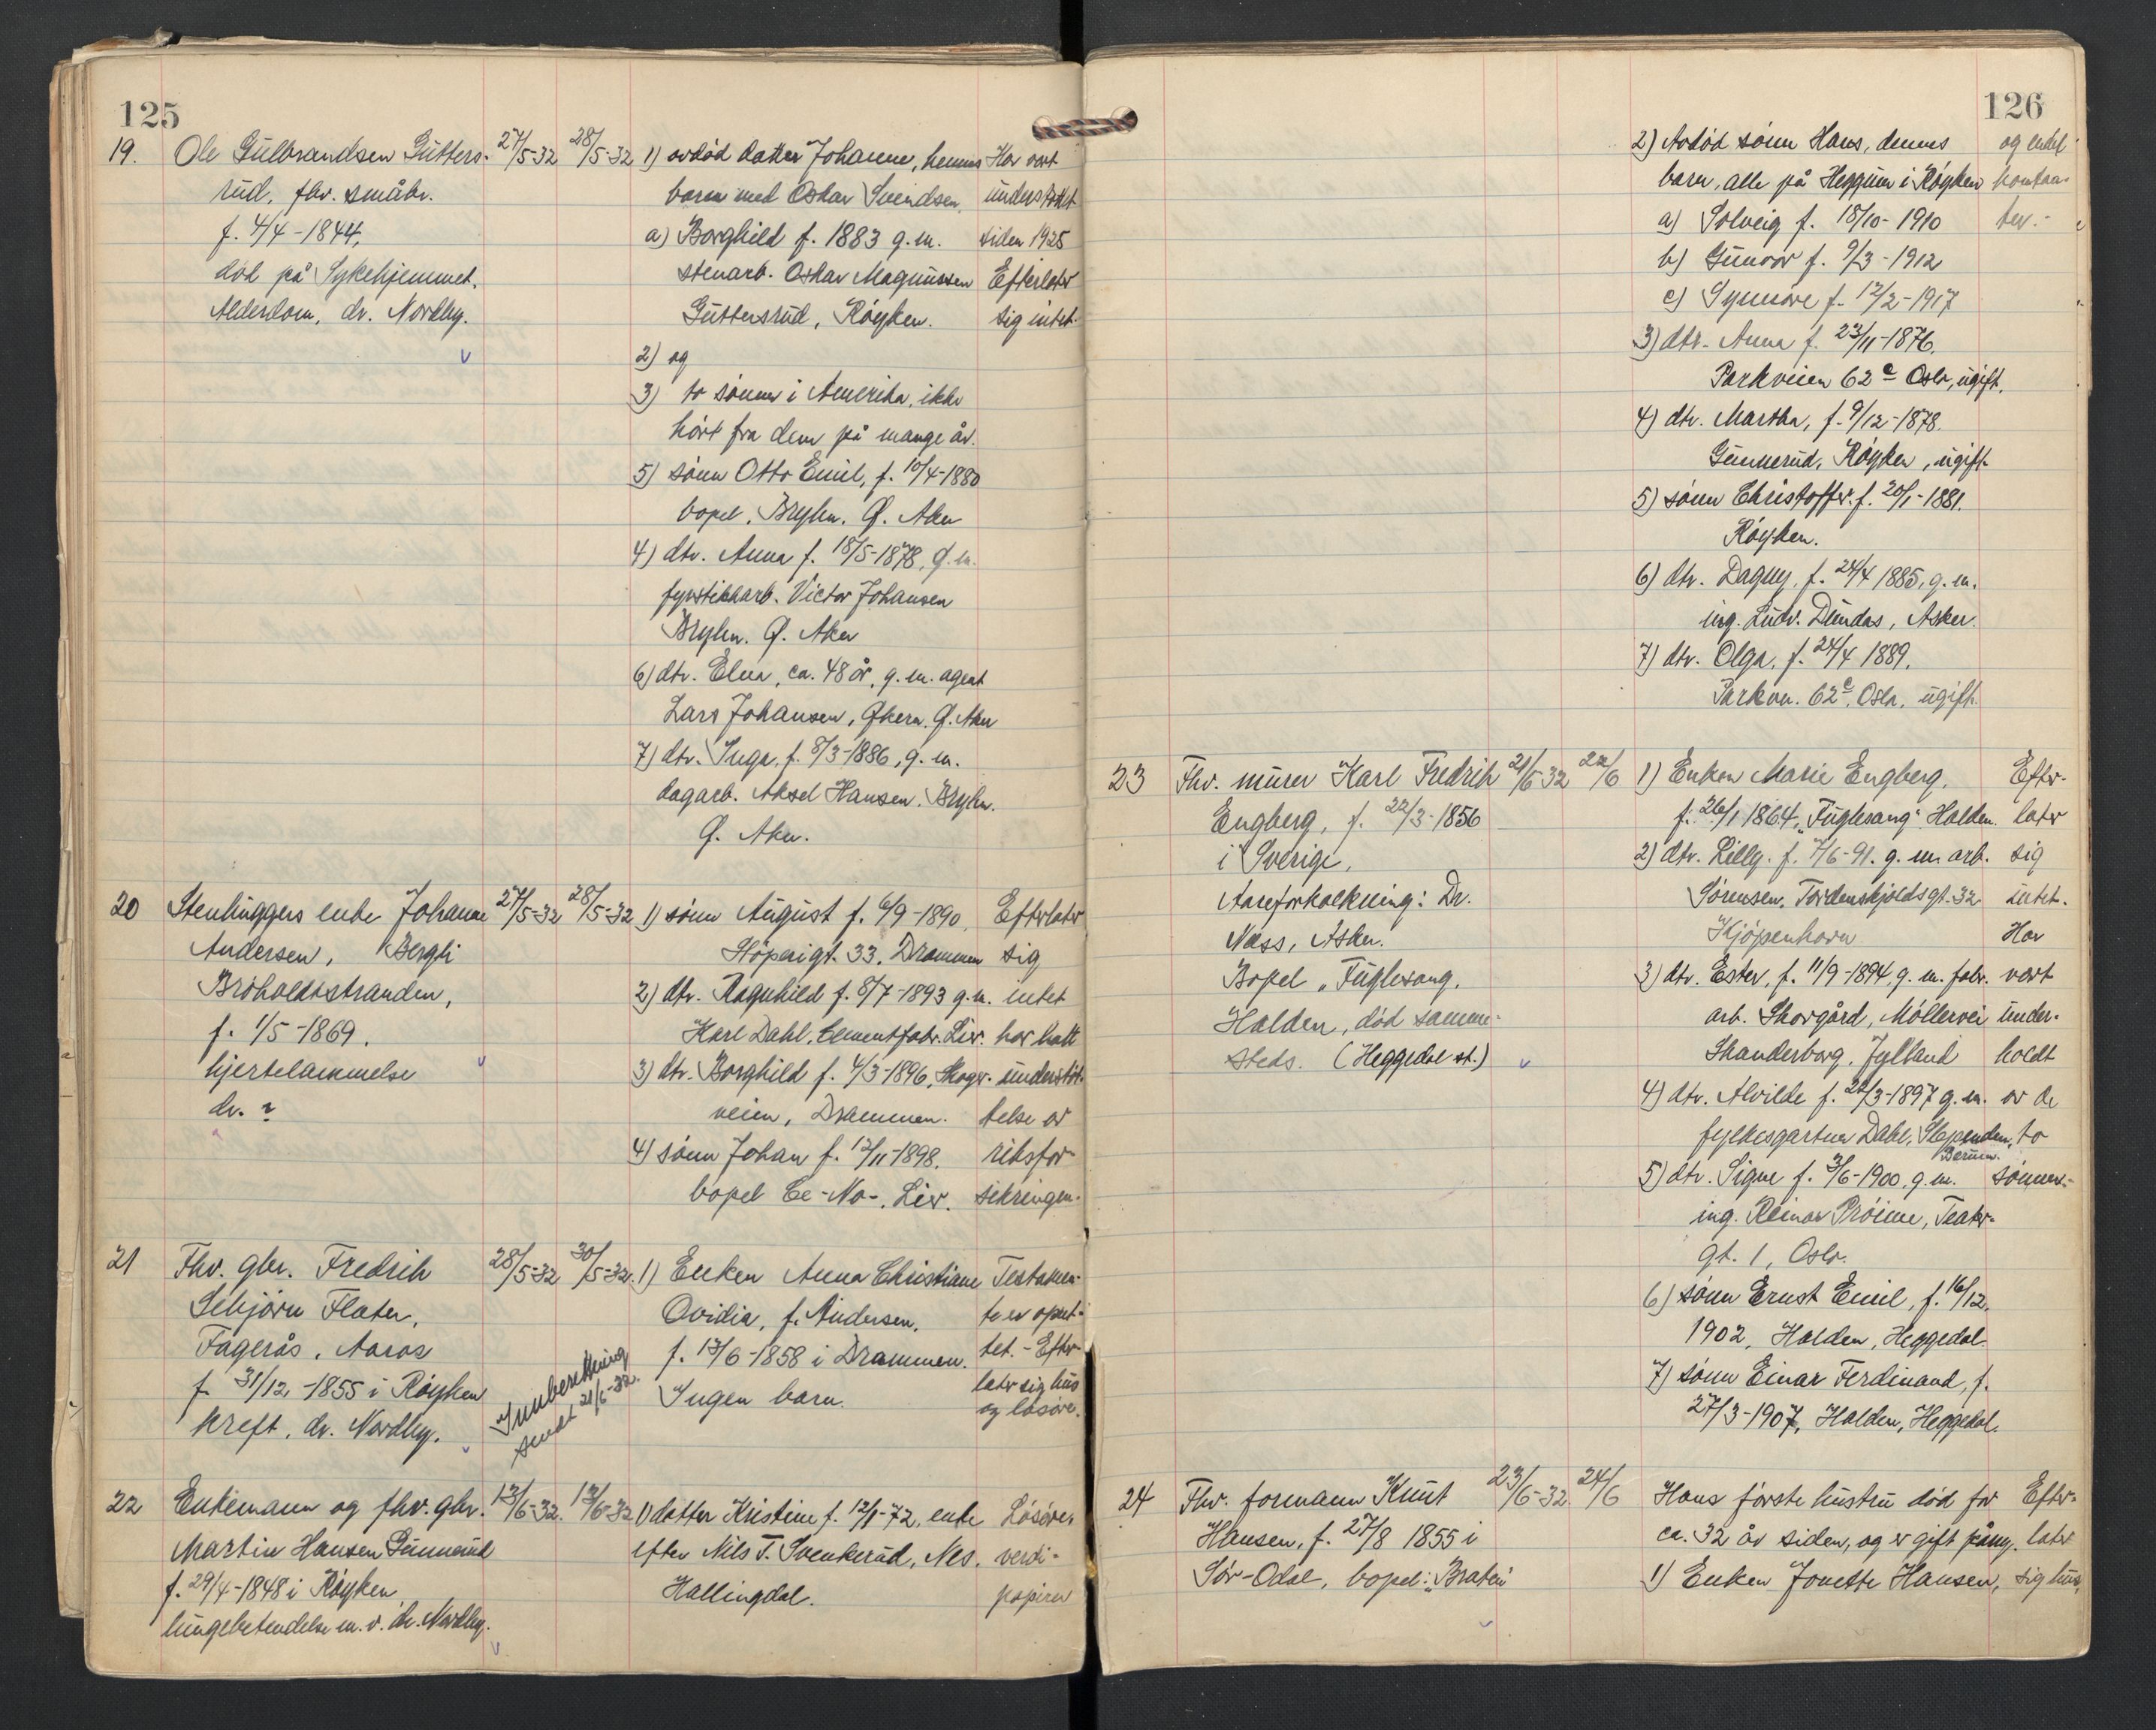 125
19. Ole Gulbrandsen Gutters- 27/5-32 28/5-32 1) avdöd datter Johanne, hennes Har vært
rud, fhv. småbr. barn med Oskar Svendsen. understöttet
f. 4/4-1844, a) Borghild f. 1883 g.m. siden 1925
död på Sykehjemmet. stenarb. Oskar Magnussen Efterlater
Alderdom, dr. Nordby. Guttersrud, Röyken. sig intet.
2) og
3) to sönner i Amerika, ikke
hört fra dem på mange år.
5) sönn Otto Emil, f. 10/4-1880
bopel. Bryhn. Ö. Aker
4) dtr. Anna f. 18/5-1878, g.m.
fyrstikkarb. Victor Johansen
Bryhn. Ö. Aker
6) dtr. Elna, ca. 48 år, g.m. agent
Lars Johansen, Økern. Ö. Aker
7) dtr. Inga. f. 8/3-1886, g.m.
dagarb. Aksel Hansen. Bryhn.
Ö. Aker.
20 Stenhuggers enke Johanne 27/5-32 28/5-32 1) sönn August f. 6/9-1890, Efterlater
Andersen, Bergli Störperigt. 33. Drammen sig
Bröholtstranden, 2) dtr. Ragnhild f. 8/7-1893 g.m. intet
f. 1/5-1869. Karl Dahl, Cementfabr. Lier. har hatt
hjertelammelse 3) dtr. Borghild f. 4/3-1896, Skoger- understöt-
dr. ? veien, Drammen. telse av
4) sönn Johan f. 12/11-1898. riksfor-
bopel Ce-No-. Lier. sikringen.
21 Fhv. gbr. Fredrik 28/5-32 30/5-32. 1) Enken Anna Christiane Testamen-
Schjörn Flaten, Ovidia, f. Andersen, te er opret-
Fagerås. Aaros f. 17/6-1858 i Drammen. tet. - Efter-
f. 31/12-1855 i Röyken Innberetning Ingen barn. later sig hus
kreft, dr. Nordby. sendt 21/6-32. og lösöre.
22 Enkemann og fhv. gbr. 13/6-32. 13/6-32 1) datter Kristine f. 12/1-72, enke Lösöre,
Martin Hansen Gunnerud efter Nils T. Svenkerud, Nes. verdi-
f. 29/4-1848 i Röyken Hallingdal. papirer
lungebetendelse m.v. dr. Nordby.
126
2) Avdöd sönn Hans, dennes og endel
barn, alle på Heggum i Röyken kontan-
a) Solveig f. 18/10-1910 ter.-
b) Gunvor f. 9/3-1912
c) Synnöve f. 12/2-1917
3) dtr. Anna f. 23/11-1876.
Parkveien 62c Oslo, ugift.
4) dtr. Martha, f. 9/12-1878.
Gunnerud, Röyken, ugift.
5) sönn Christoffer f. 20/1-1881.
Röyken.
6) dtr. Dagny, f. 24/4 1885, g.m.
ing. Ludv. Dundas, Asker.
7) dtr. Olga, f. 24/4 1889.
Parkvn. 62c, Oslo, ugift.
23 Fhv. murer Karl Fredrik 21/6-32 22/6 1) Enken Marie Engberg, Efter-
Engberg, f. 22/3-1856 f. 26/1 1864, "Fuglesang" Halden. later
i Sverige. 2) dtr. Lilly. f. 7/6-91. g.m. arb. sig
Aareforkalkning: Dr. Sörensen, Tordenskjoldsgt. 32 intet.
Næss, Asker. Kjöpenhavn. Har
Bopel "Fuglesang, 3) dtr. Ester, f. 11/9-1894, g.m. fabr. vært
Halden, död samme- arb. Skovgård, Möllervei under-
steds. (Heggedal st.) Skanderborg, Jylland holdt
4) dtr. Alvilde f. 22/3-1897 g.m. av de
fylkesgartner Dahl, Slependen, to
Bærum.
5) dtr. Signe f. 3/6-1900, g.m. sönner.-
ing. Reinar Pröime, Teater-
gt. 1, Oslo.
6) sönn Ernst Emil, f. 16/12.
1902, Halden, Heggedal.
7) sönn Einar Ferdinand, f.
27/3-1907, Halden, Heggedal.
24 Fhv. formann Knut 23/6-32. 24/6 Hans förste hustru död for Efter-
Hansen, f. 27/8 1855 i ca. 32 år siden, og er gift påny. later
Sör-Odal, bopel: "Braten" 1) Enken Jonette Hansen, sig hus,